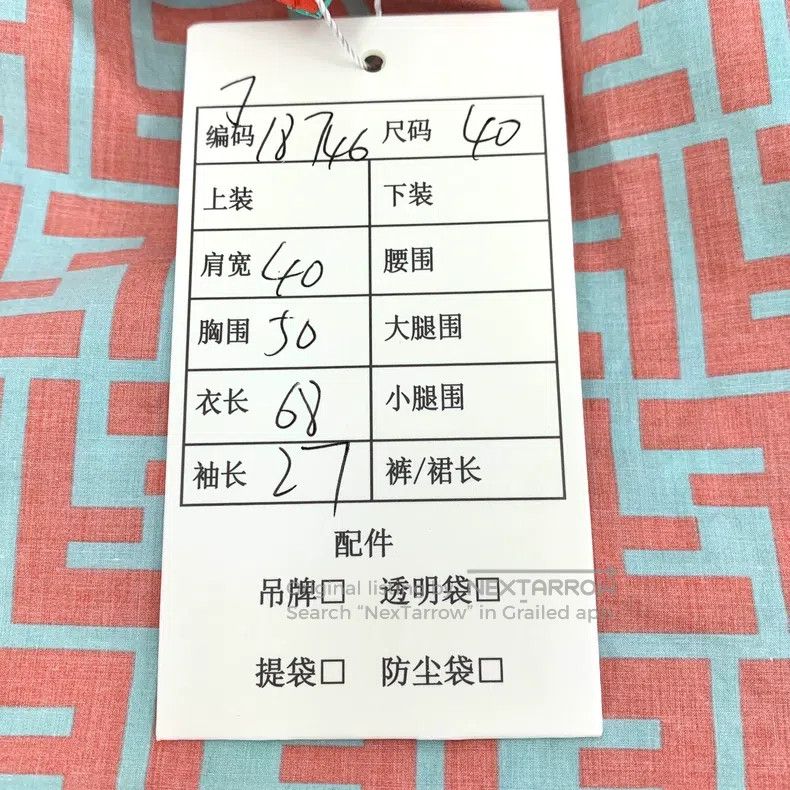 7
编码 18746 尺码 40
上装 下装
肩宽 40 腰围
胸围 50 大腿围
衣长 68 小腿围
袖长 27 裤/裙长
配件
吊牌□ 透明袋□
Original listing by NEXTARROW
Search “NexTarrow” in Grailed app
提袋□ 防尘袋□